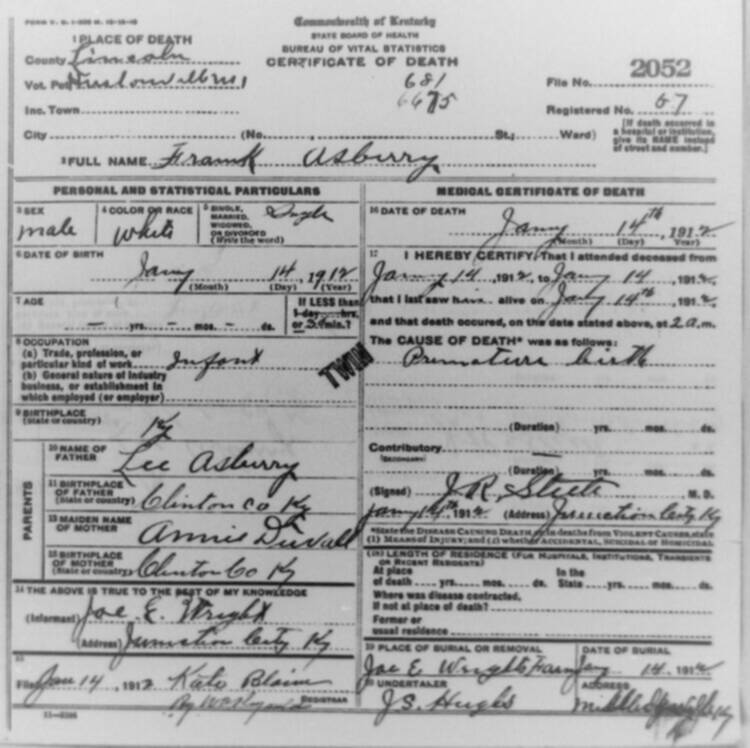 FORM V. S. 1-
Commonwealth of Kentucky
STATE BOARD OF HEALTH
BUREAU OF VITAL STATISTICS
CERTIFICATE OF DEATH
1 PLACE OF DEATH
County Lincoln
Vot. Pct
Inc. Town
City (No. St.; Ward)
681
6675
File No. 2052
Registered No. 67
[If death occurred in a hospital or institution, give its NAME instead of street and number.]
2 FULL NAME Frank Asberry
PERSONAL AND STATISTICAL PARTICULARS
3 SEX male
4 COLOR OR RACE White
5 SINGLE, MARRIED, WIDOWED, OR DIVORCED (Write the word) Single
6 DATE OF BIRTH
Jany 14, 1912
(Month) (Day) (Year)
7 AGE
If LESS than
1 day hrs.
yrs. mos. ds. or min.?
8 OCCUPATION
(a) Trade, profession, or particular kind of work Infant
(b) General nature of industry business, or establishment in which employed (or employer)
9 BIRTHPLACE
(State or country) Ky
PARENTS
10 NAME OF FATHER Lee Asberry
11 BIRTHPLACE OF FATHER (State or country) Clinton Co Ky
12 MAIDEN NAME OF MOTHER Annie Duvall
13 BIRTHPLACE OF MOTHER (State or country) Clinton Co Ky
14 THE ABOVE IS TRUE TO THE BEST OF MY KNOWLEDGE
(Informant) Joe E. Wright
(Address) Junction City Ky
15
Filed Jan 14, 1912 Kate Blain
By
REGISTRAR
TWIN
MEDICAL CERTIFICATE OF DEATH
16 DATE OF DEATH
Jany 14th 1912
(Month) (Day) (Year)
17 I HEREBY CERTIFY, That I attended deceased from
Jany 14, 1912, to Jany 14, 1912,
that I last saw him alive on Jany 14th, 1912,
and that death occured, on the date stated above, at 2 a.m.
The CAUSE OF DEATH* was as follows:
Premature birth
(Duration) yrs. mos. ds.
Contributory
(SECONDARY)
(Duration) yrs. mos. ds.
(Signed) J.R. M. D.
Jany 14th, 1912 (Address) Junction City Ky
*State the DISEASE CAUSING DEATH, or in deaths from VIOLENT CAUSES, state
(1) MEANS OF INJURY; and (2) whether ACCIDENTAL, SUICIDAL or HOMICIDAL
18 LENGTH OF RESIDENCE (FOR HOSPITALS, INSTITUTIONS, TRANSIENTS OR RECENT RESIDENTS)
At place of death yrs. mos. ds. In the State yrs. mos. ds.
Where was disease contracted,
If not at place of death?
Former or
usual residence
19 PLACE OF BURIAL OR REMOVAL
DATE OF BURIAL
Joe E Wrights Farm Jany 14, 1912
20 UNDERTAKER
ADDRESS
J.S. Hughs